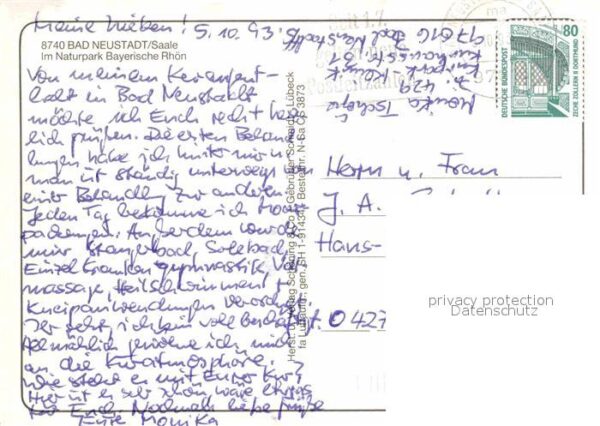 Meine Lieben! 5.10.93.
8740 BAD NEUSTADT/Saale
Im Naturpark Bayerische Rhön
Von meinem Kuraufent-
halt in Bad Neustadt
möchte ich Euch recht herz-
lich grüßen. Die ersten Behand-
lungen habe ich hinter mir
man ist ständig unterwegs von
einer Behandlung zur anderen.
Jeden Tag bekomme ich Moor-
packungen. Außerdem wurde
mir Stangerbad, Solebad,
Einzelkrankengymnastik,
massage, Heilschwimmen
Kneipanwendungen verordnet.
Ihr seht, ich bin voll beschäftigt.
Allmählich gewöhne ich mich
an die Kuratmosphäre.
Wie steht es mit Eurer Kur?
Hier ist es sehr schön, wäre etwas
für Euch. Nochmals liebe Grüße
Eure Monika
Monika
Zi. 429
97616 Bad Neustadt
Herrn u. Frau
J. A.
Hans-
0427
80
DEUTSCHE BUNDESPOST
ZECHE ZOLLERN II DORTMUND
privacy protection
Datenschutz